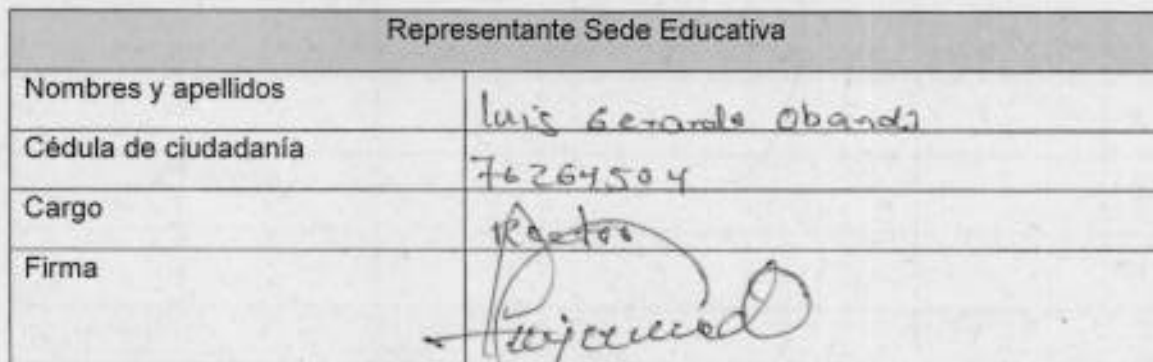 Representante Sede Educativa
Nombres y apellidos
luis Gerardo Obando
Cédula de ciudadanía
76264504
Cargo
Rector
Firma